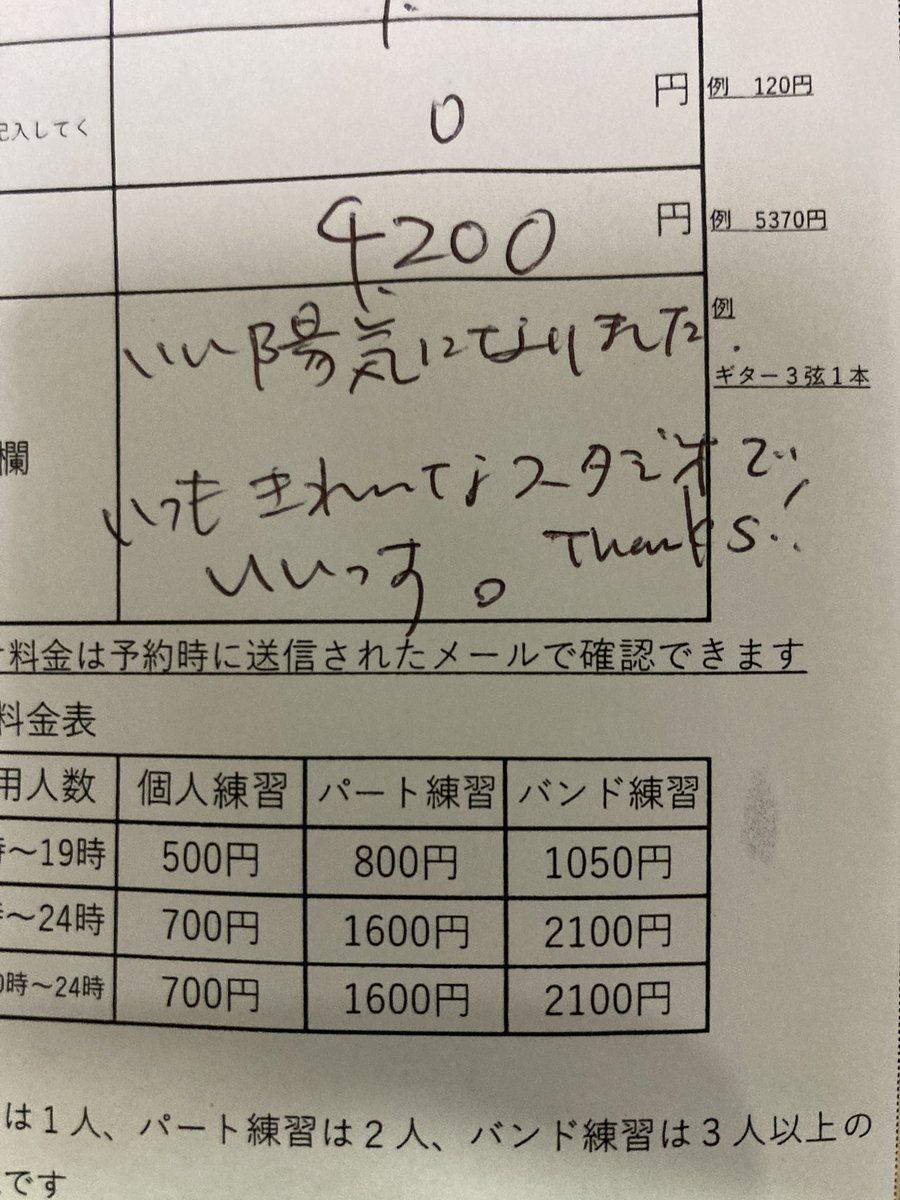 0 円 例 120円
記入してく
4,200 円 例 5370円
例
いい陽気になりました.
ギター3弦1本
欄
いつもきれいなスタジオで
いいっす。 Thanks!
料金は予約時に送信されたメールで確認できます
料金表
用人数 個人練習 パート練習 バンド練習
時〜19時 500円 800円 1050円
〜24時 700円 1600円 2100円
0時〜24時 700円 1600円 2100円
は1人、パート練習は2人、バンド練習は3人以上の
です